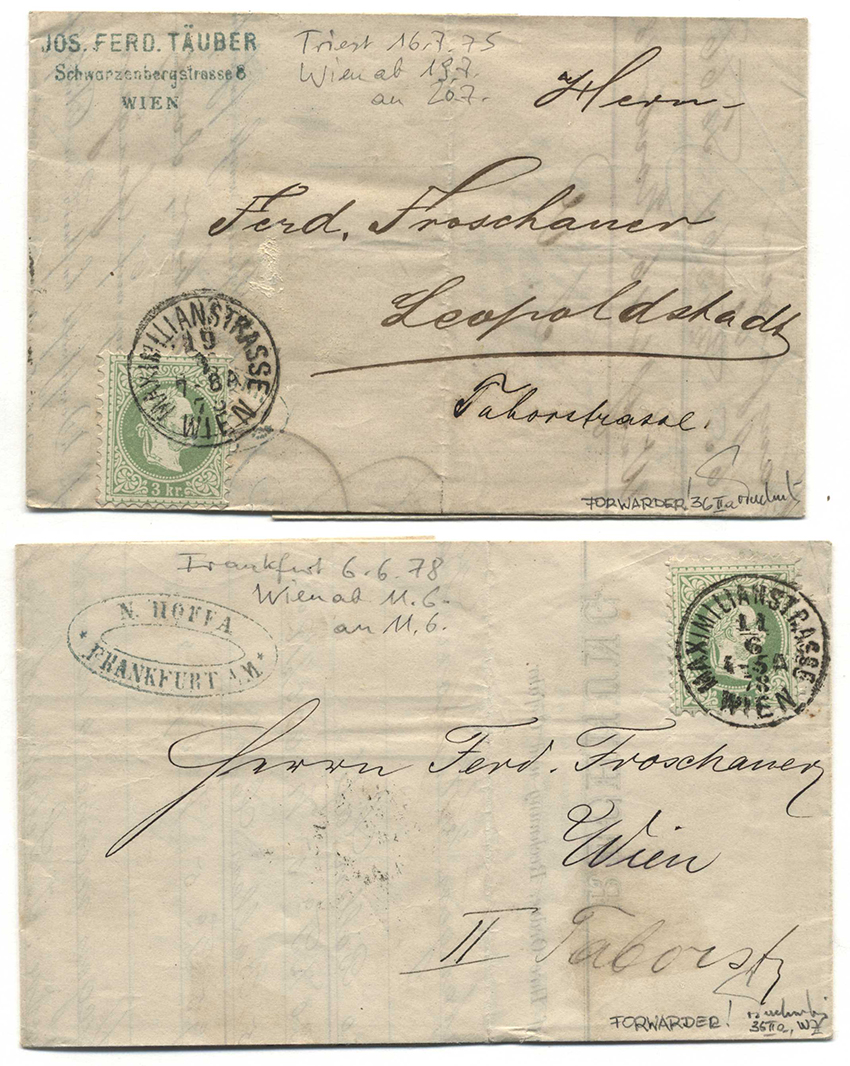 JOS. FERD. TÄUBER
Schwarzenbergstrasse 8
WIEN
Triest 16.7.75
Wien ab 19.7.
an 20.7.
Herrn
Ferd. Froschauer
Leopoldstadt
Taborstrasse.
MAXIMILIANSTRASSE
19
7
7-8A
75
WIEN
3 kr.
FORWARDER! 36IIa
Frankfurt 6.6.78
Wien ab 11.6.
an 11.6.
N. HOFFA
* FRANKFURT A/M *
MAXIMILIANSTRASSE
11
6
78
WIEN
Herrn Ferd. Froschauer
Wien
II Taborstr
FORWARDER!
36IIa, WZ